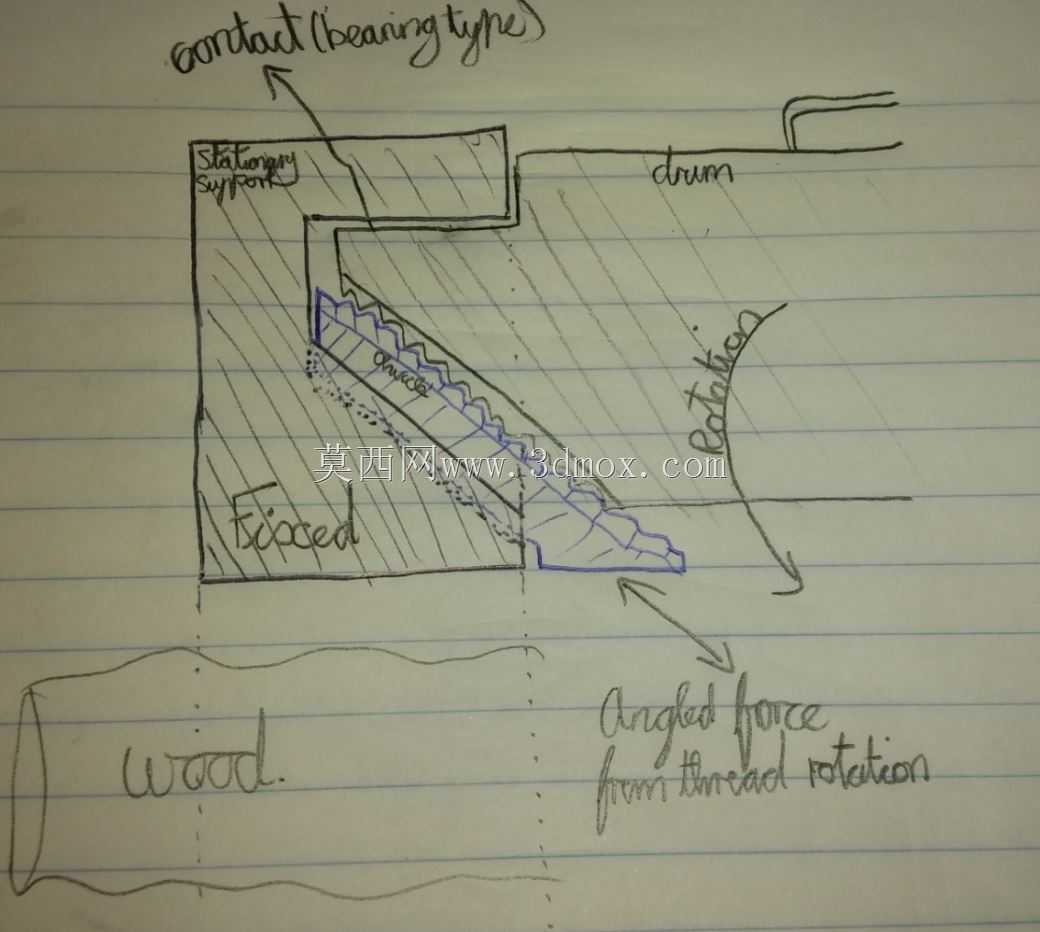 contact (bearing type)
stationary
support
drum
Rotation
chuck
莫西网www.3dmox.com
Fixed
Angled force
from thread rotation
wood.